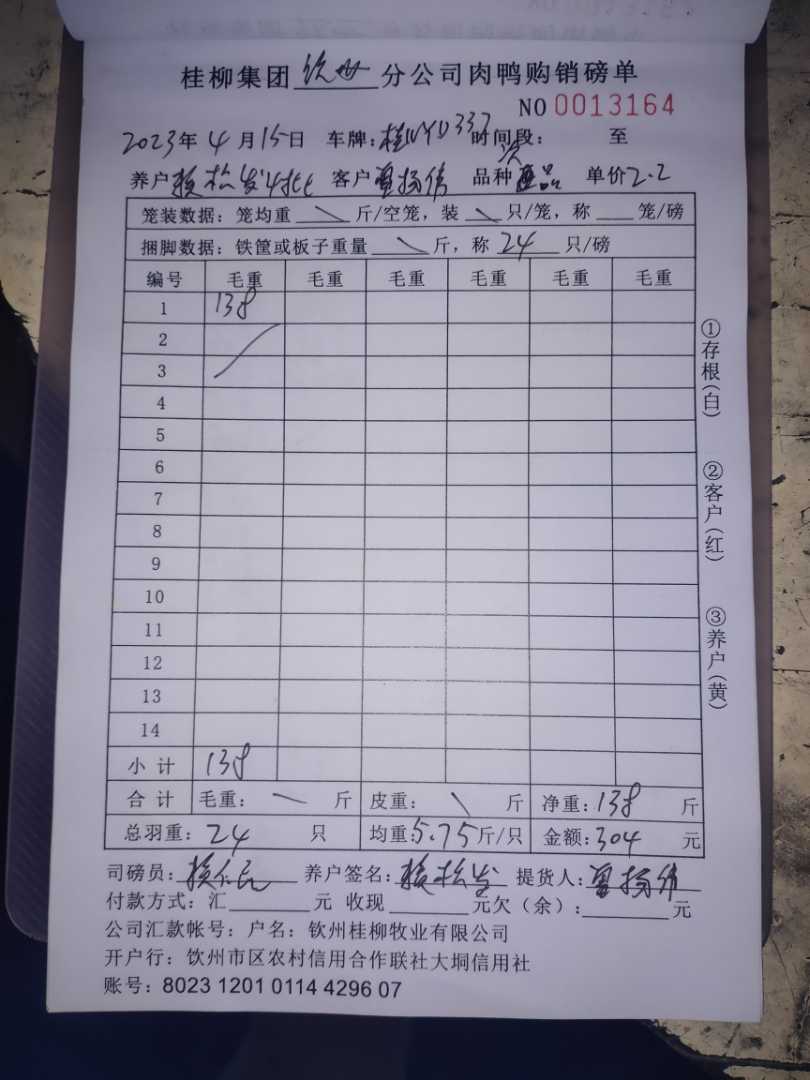 桂柳集团 钦州 分公司肉鸭购销磅单
NO 0013164
2023年 4月15日 车牌:桂NYU337 时间段: 至
养户 赖松发4批 客户 曾扬伟 品种 次品 单价2.2
笼装数据:笼均重 \ 斤/空笼,装 \ 只/笼,称 笼/磅
捆脚数据:铁筐或板子重量 \ 斤,称 24 只/磅
编号 毛重 毛重 毛重 毛重 毛重 毛重
1 138
2
3
4
5
6
7
8
9
10
11
12
13
14
小计 138
合计 毛重: \ 斤 皮重: \ 斤 净重:138 斤
总羽重:24 只 均重:5.75斤/只 金额:304 元
司磅员:赖仁民 养户签名:赖松发 提货人:曾扬伟
付款方式:汇 元 收现 元欠(余): 元
公司汇款帐号:户名:钦州桂柳牧业有限公司
开户行:钦州市区农村信用合作联社大垌信用社
账号:8023 1201 0114 4296 07
①存根(白)
②客户(红)
③养户(黄)